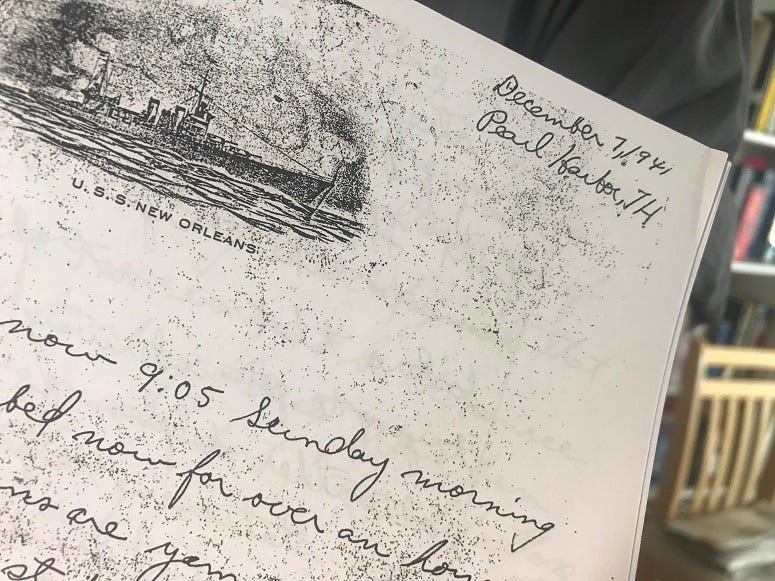 December 7, 1941
Pearl Harbor, TH
U.S.S. NEW ORLEANS
now 9:05 Sunday morning
bed now for over an hou
ns are yam
st